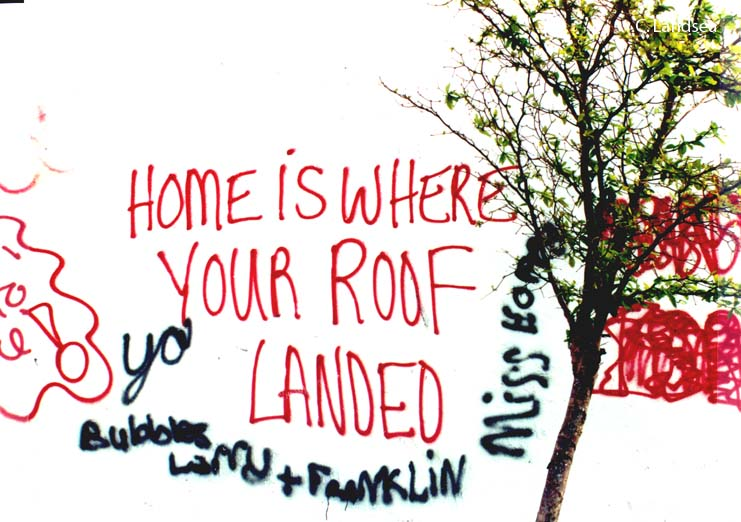 C. Landsea
HOME iS WHERE
YOUR ROOF
LANDED
yo
Bubbles
Larry
+ FraNKLiN
Miss